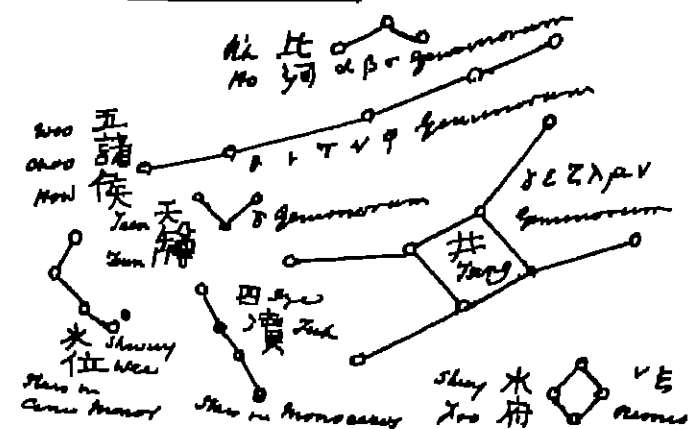 比 河
Ho α β σ Geminorum
Woo 五
Choo 諸
How 侯
θ ι τ ν φ Geminorum
Tsun 天
Tsun 罇
δ Geminorum
γ ε ζ λ μ ν
Geminorum
井
Tsing
四 Sze
瀆 Tuh
水 Shwuy
位 Wei
Stars in
Canis Minor
Stars in Monoceros
Shwuy 水
Foo 府
ν ξ
Orionis